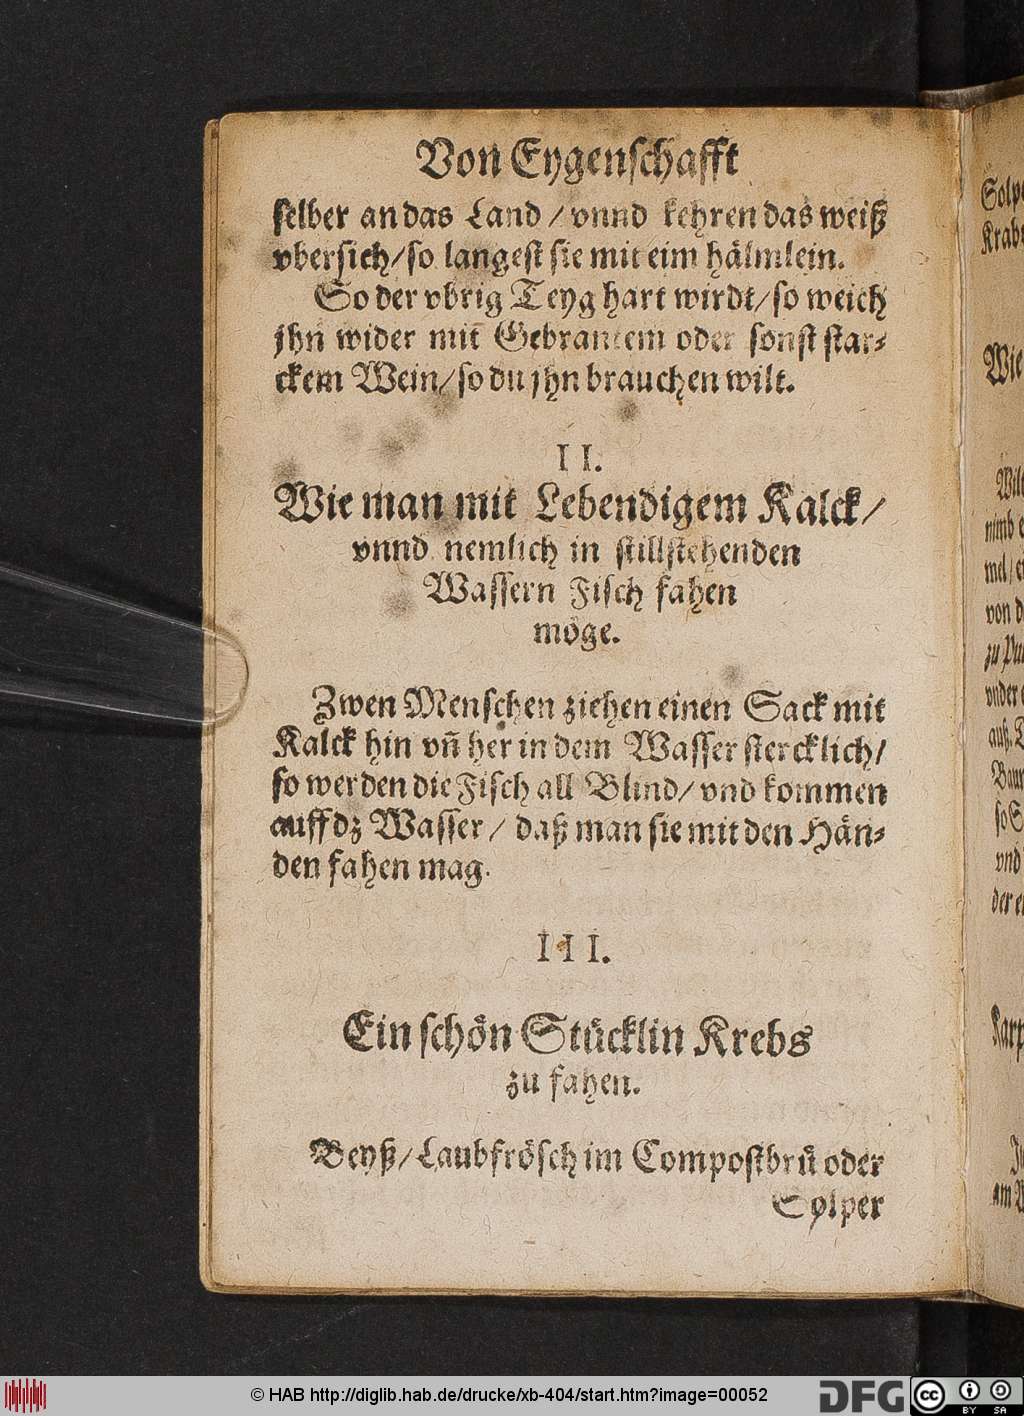 Von Eygenschafft
selber an das Land / vnnd kehren das weiß
vbersich / so langest sie mit eim hälmlein.
So der vbrig Teyg hart wirdt / so weich
jhn wider mit Gebrantem oder sonst star-
ckem Wein / so du jhn brauchen wilt.
II.
Wie man mit Lebendigem Kalck /
vnnd nemlich in stillstehenden
Wassern Fisch fahen
möge.
Zwen Menschen ziehen einen Sack mit
Kalck hin vñ her in dem Wasser stercklich /
so werden die Fisch all Blind / vnd kommen
auff dz Wasser / daß man sie mit den Hän-
den fahen mag.
III.
Ein schön Stücklin Krebs
zu fahen.
Beyß / Laubfrösch im Compostbrü oder
Sölper
Wie
nimb
von
zu
vnder
auß
so
vnd
der
am
© HAB http://diglib.hab.de/drucke/xb-404/start.htm?image=00052
DFG
cc
BY SA